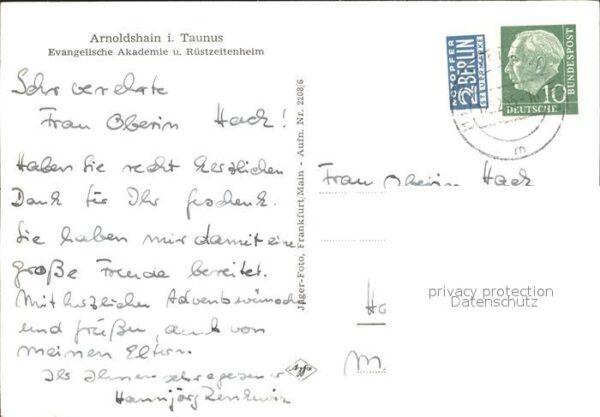 Arnoldshain i. Taunus
Evangelische Akademie u. Rüstzeitenheim
Sehr verehrte
Frau Oberin Hack!
Haben Sie recht herzlichen
Dank für Ihr Geschenk.
Sie haben mir damit eine
große Freude bereitet.
Mit herzlichen Adventswünschen
und Grüßen, auch von
meinen Eltern.
Ihr Ihnen sehr ergebener
Hannjörg
Jäger-Foto, Frankfurt/Main - Aufn. Nr. 2208/6
NOTOPFER
2 BERLIN
STEUERMARKE
DEUTSCHE
BUNDESPOST
10
Frau Oberin Hack
Ha
M
privacy protection
Datenschutz